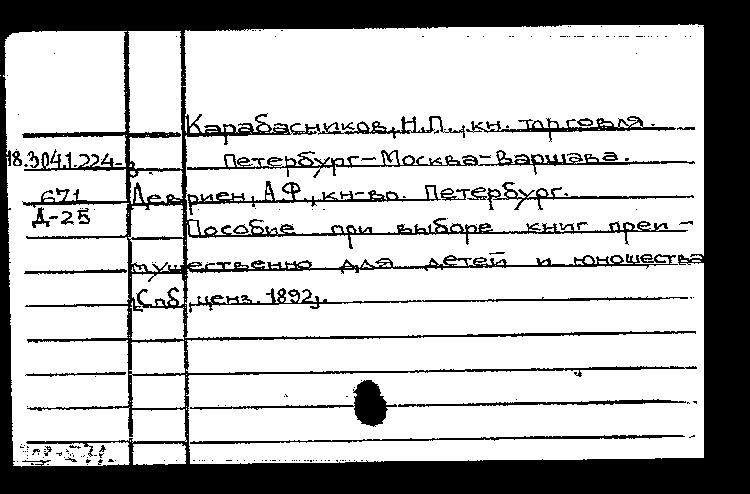 Карабасников, Н.П., кн. торговля.
18.304.1.224-3. Петербург-Москва-Варшава.
671 Девриен, А.Ф., кн-во. Петербург.
Д-25 Пособие при выборе книг преи-
мущественно для детей и юношества
[Спб, ценз. 1892].